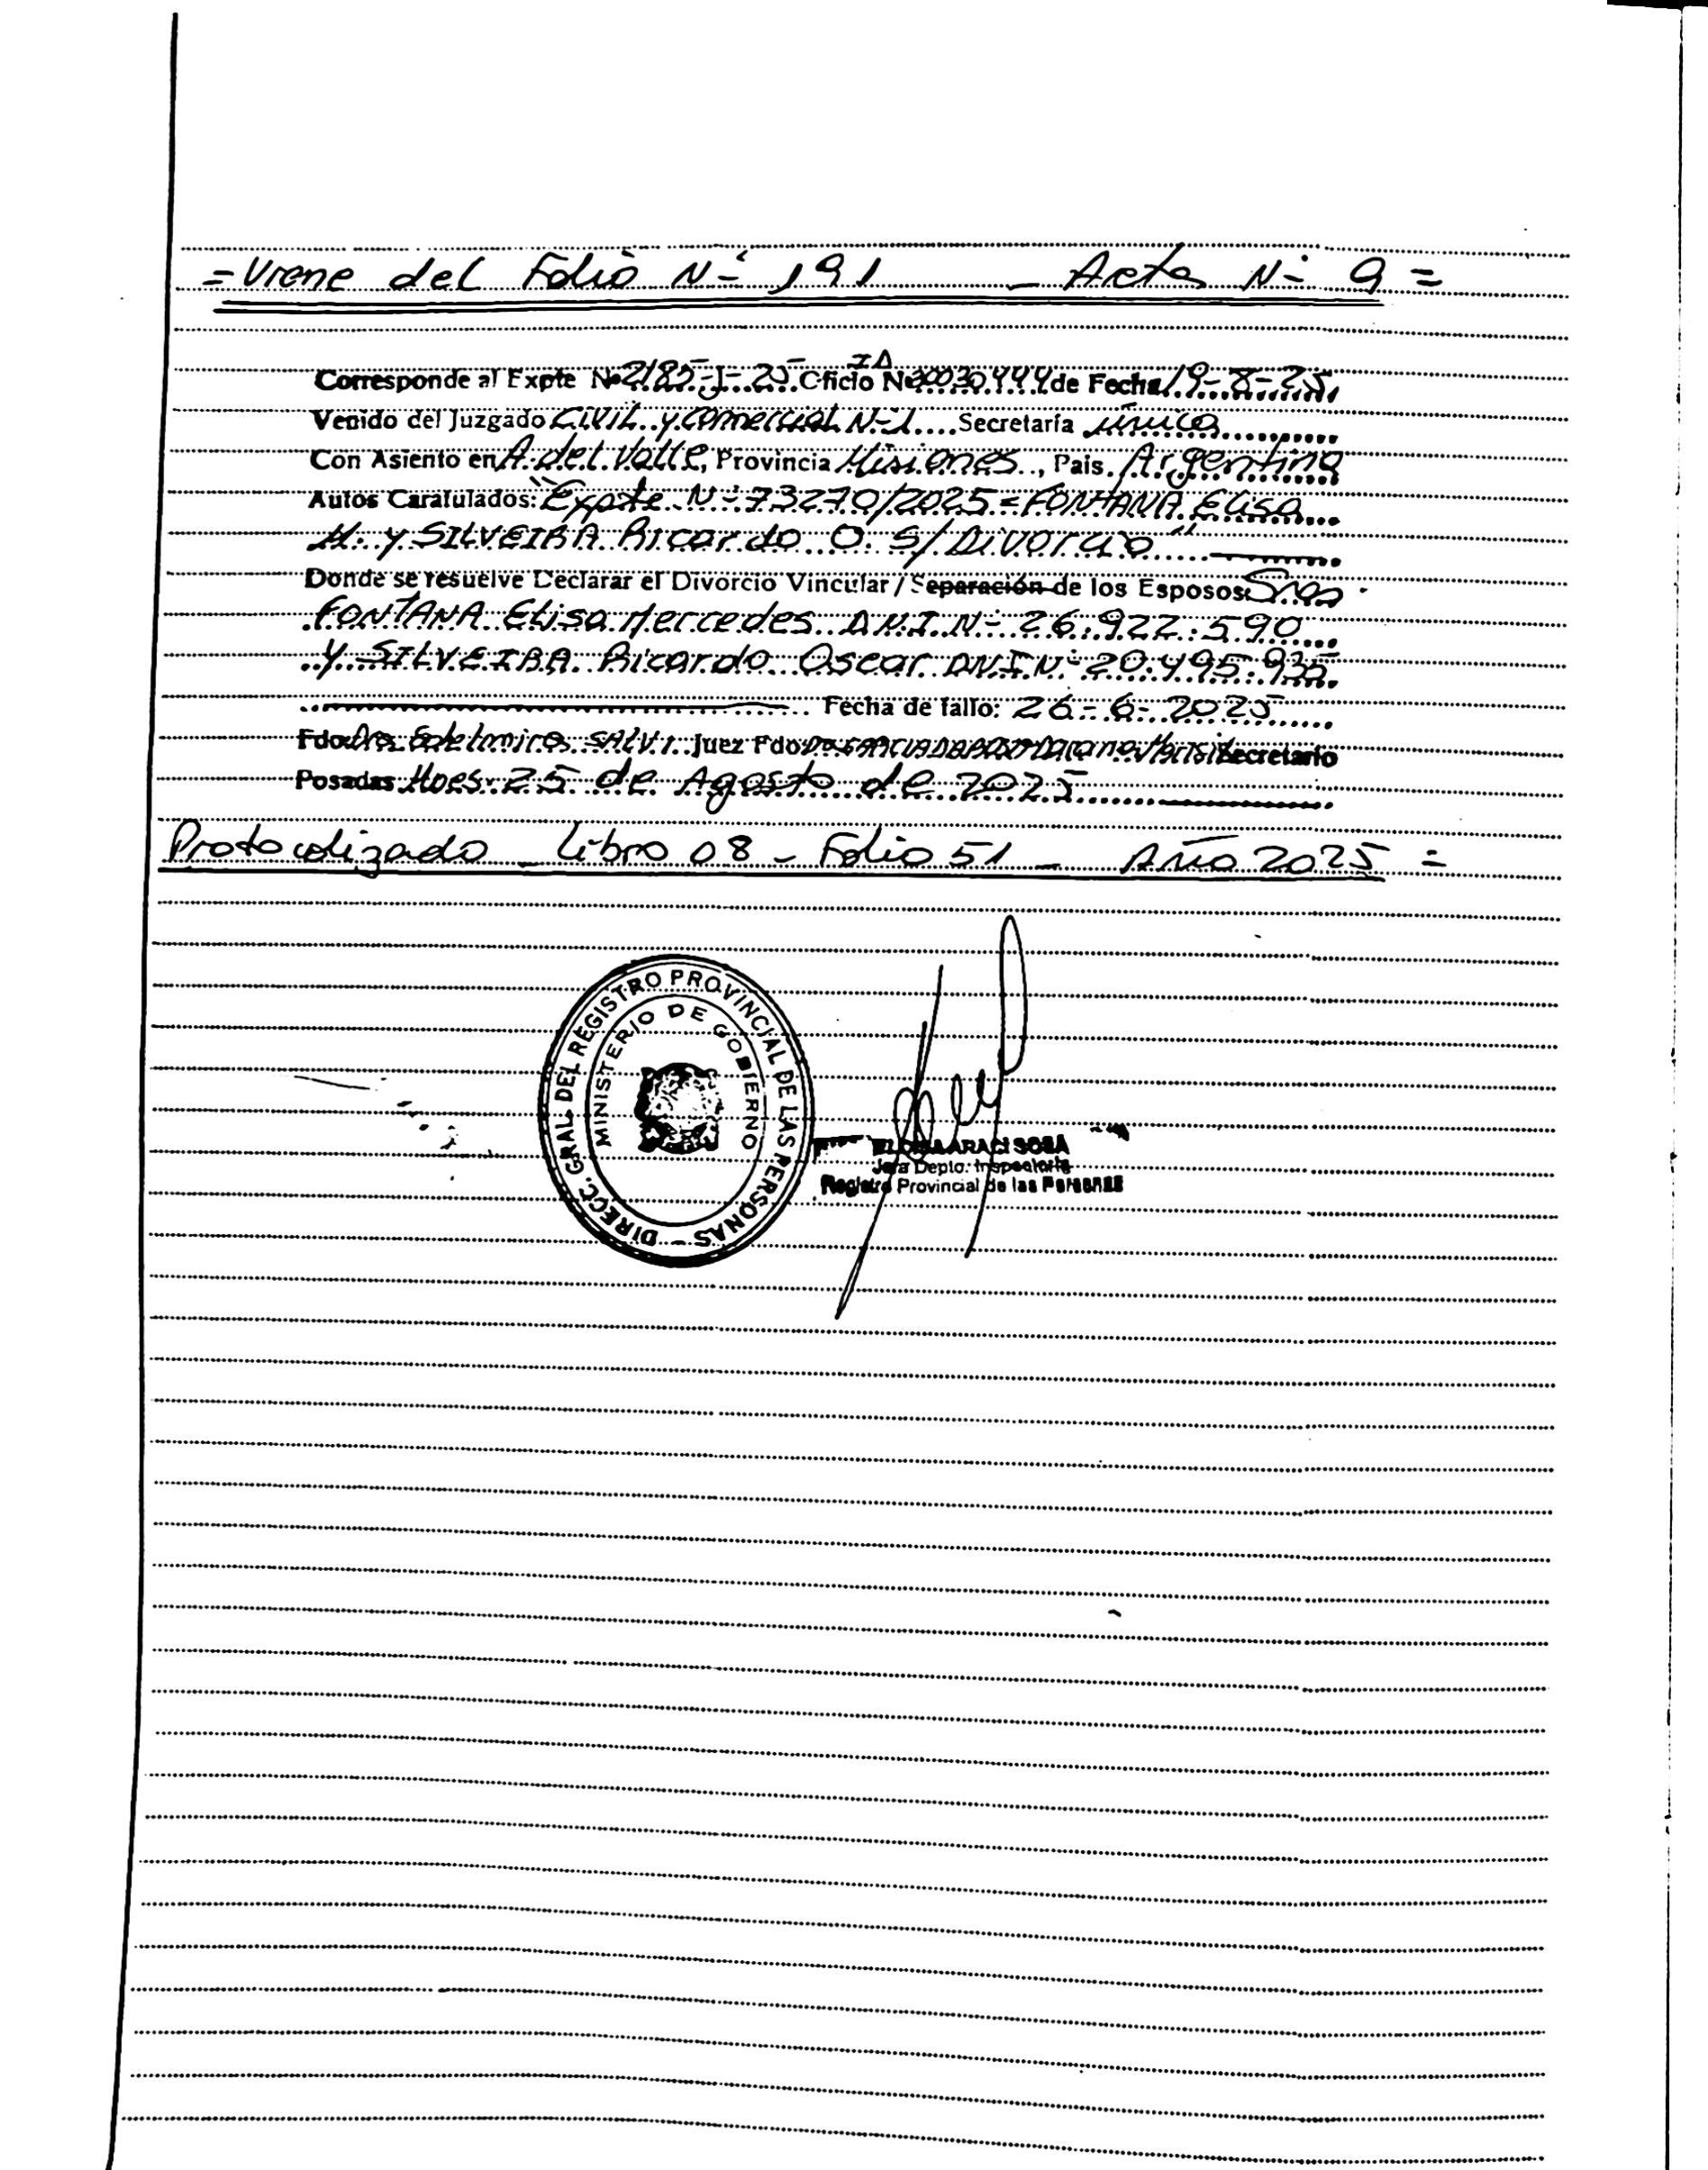 = Viene del Folio Nº 191 _ Acta Nº 9 =
Corresponde al Expte Nº 2185-J-25 Oficio Nº ID 30030444 de Fecha 19-8-25.
Venido del Juzgado Civil y Comercial Nº 1 .... Secretaría única
Con Asiento en A. del Valle, Provincia Misiones, Pais. Argentina
Autos Caratulados: "Expte Nº 73270/2025 = FONTANA Elisa
M. y SILVEIRA Ricardo O. S/ Divorcio"
Donde se resuelve Declarar el Divorcio Vincular / Separación de los Esposos Sres
FONTANA Elisa Mercedes D.N.I. Nº 26.922.590
y SILVEIRA Ricardo Oscar DNI Nº 20.495.935
Fecha de fallo: 26-6-2025
Fdo Dra Edelmira SALVI Juez Fdo Secretario
Posadas Mnes 25 de Agosto de 2025
Protocolizado _ Libro 08 - Folio 51 _ Año 2025 =
DIRECC. GRAL. DEL REGISTRO PROVINCIAL DE LAS PERSONAS -
MINISTERIO DE GOBIERNO
ARACI SOSA
Jefa Depto. Inspectoría
Registro Provincial de las Personas